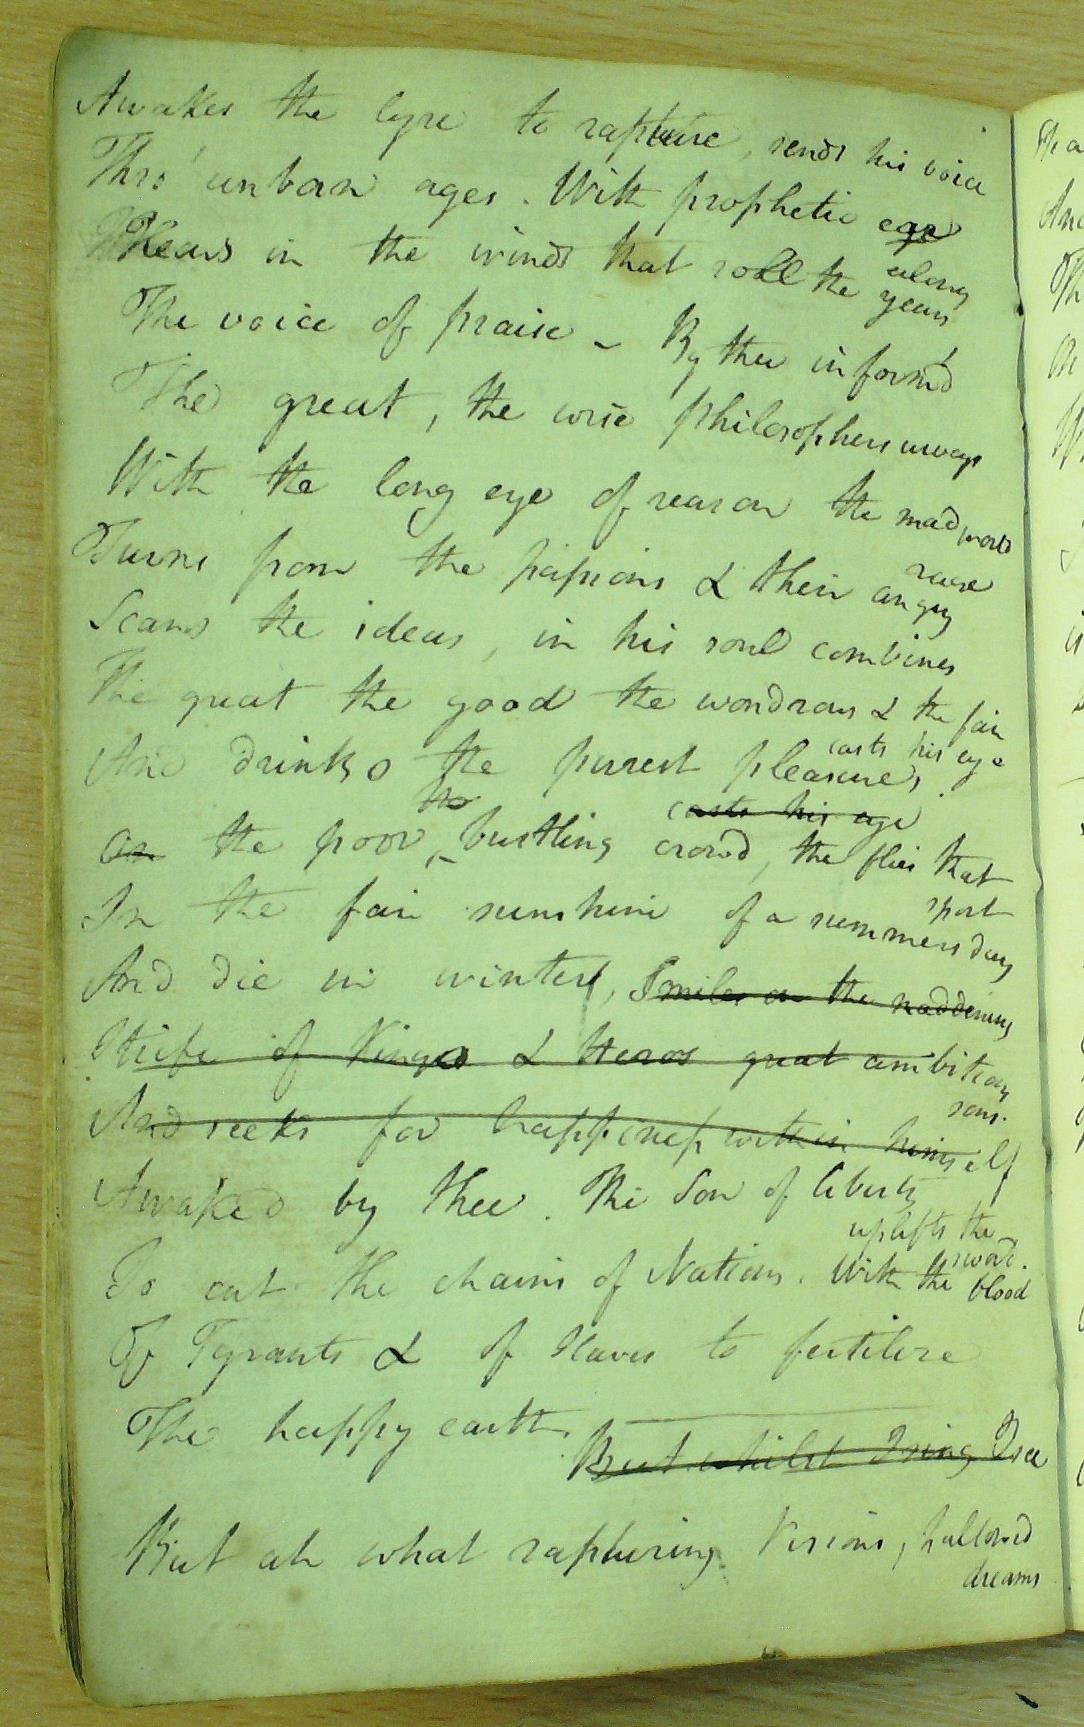 Awakes the lyre to rapture, sends his voice
Thro' unborn ages. With prophetic ear
Hears in the winds that roll the along years
The voice of praise – By thee inform'd
The great, the wise philosopher surveys
With the long eye of reason the mad world
Turns from the passions & their angry race
Scans the ideas, in his soul combines
The great the good the wondrous & the fair
And drinks the purest pleasures, casts his eye
casts his eye
on the poor bustling crowd, the flies that sport
In the fair sunshine of a summers day
And die in winter, Smiles on the maddening
Strife of Kings & Heros great ambitions sons.
And seeks for happiness within himself
Awaked by thee. The Son of liberty uplifts the sword.
To cut the chains of Nations. With the blood
Of Tyrants & of slaves to fertilize
The happy earth.
But whilst I sing I see
But ah what rapturing Visions, hallowed dreams